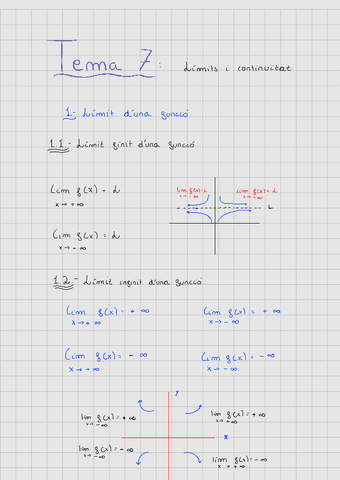 Tema 7: Límits i continuitat
1.- Límit d'una funció
1.1.- Límit finit d'una funció
lim f(x) = L
x→+∞
lim f(x) = L
x→-∞
lim f(x) = L
x→-∞
lim f(x) = L
x→+∞
L
1.2.- Límit infinit d'una funció
lim f(x) = +∞
x→+∞
lim f(x) = +∞
x→-∞
lim f(x) = -∞
x→+∞
lim f(x) = -∞
x→-∞
Y
lim f(x) = +∞
x→-∞
lim f(x) = +∞
x→+∞
X
lim f(x) = -∞
x→-∞
lim f(x) = -∞
x→+∞